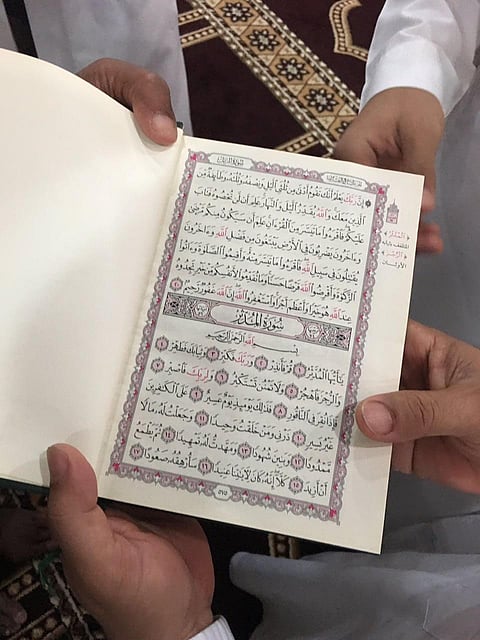 الجزء التاسع والعشرون سورة المزمل
۞ إِنَّ رَبَّكَ يَعْلَمُ أَنَّكَ تَقُومُ أَدْنَىٰ مِن ثُلُثَيِ ٱلَّيْلِ وَنِصْفَهُۥ وَثُلُثَهُۥ وَطَآئِفَةٌ مِّنَ
ٱلَّذِينَ مَعَكَ وَٱللَّهُ يُقَدِّرُ ٱلَّيْلَ وَٱلنَّهَارَ عَلِمَ أَن لَّن تُحْصُوهُ فَتَابَ
عَلَيْكُمْ فَٱقْرَءُوا۟ مَا تَيَسَّرَ مِنَ ٱلْقُرْءَانِ عَلِمَ أَن سَيَكُونُ مِنكُم مَّرْضَىٰ
وَءَاخَرُونَ يَضْرِبُونَ فِى ٱلْأَرْضِ يَبْتَغُونَ مِن فَضْلِ ٱللَّهِ وَءَاخَرُونَ
يُقَٰتِلُونَ فِى سَبِيلِ ٱللَّهِ فَٱقْرَءُوا۟ مَا تَيَسَّرَ مِنْهُ وَأَقِيمُوا۟ ٱلصَّلَوٰةَ وَءَاتُوا۟
ٱلزَّكَوٰةَ وَأَقْرِضُوا۟ ٱللَّهَ قَرْضًا حَسَنًا وَمَا تُقَدِّمُوا۟ لِأَنفُسِكُم مِّنْ خَيْرٍ تَجِدُوهُ
عِندَ ٱللَّهِ هُوَ خَيْرًا وَأَعْظَمَ أَجْرًا وَٱسْتَغْفِرُوا۟ ٱللَّهَ إِنَّ ٱللَّهَ غَفُورٌ رَّحِيمٌ ٢٠
سُورَةُ المُدَّثِّرِ
بِسْمِ ٱللَّهِ ٱلرَّحْمَٰنِ ٱلرَّحِيمِ
يَٰٓأَيُّهَا ٱلْمُدَّثِّرُ ١ قُمْ فَأَنذِرْ ٢ وَرَبَّكَ فَكَبِّرْ ٣ وَثِيَابَكَ فَطَهِّرْ ٤
وَٱلرُّجْزَ فَٱهْجُرْ ٥ وَلَا تَمْنُن تَسْتَكْثِرُ ٦ وَلِرَبِّكَ فَٱصْبِرْ ٧
فَإِذَا نُقِرَ فِى ٱلنَّاقُورِ ٨ فَذَٰلِكَ يَوْمَئِذٍ يَوْمٌ عَسِيرٌ ٩ عَلَى ٱلْكَٰفِرِينَ
غَيْرُ يَسِيرٍ ١٠ ذَرْنِى وَمَنْ خَلَقْتُ وَحِيدًا ١١ وَجَعَلْتُ لَهُۥ مَالًا
مَّمْدُودًا ١٢ وَبَنِينَ شُهُودًا ١٣ وَمَهَّدتُّ لَهُۥ تَمْهِيدًا ١٤ ثُمَّ يَطْمَعُ
أَنْ أَزِيدَ ١٥ كَلَّآ إِنَّهُۥ كَانَ لِءَايَٰتِنَا عَنِيدًا ١٦ سَأُرْهِقُهُۥ صَعُودًا ١٧
٥٧٥
{الْمُدَّثِّرُ}
المتلفف بثيابه
{الرُّجْزَ}
الأوثان